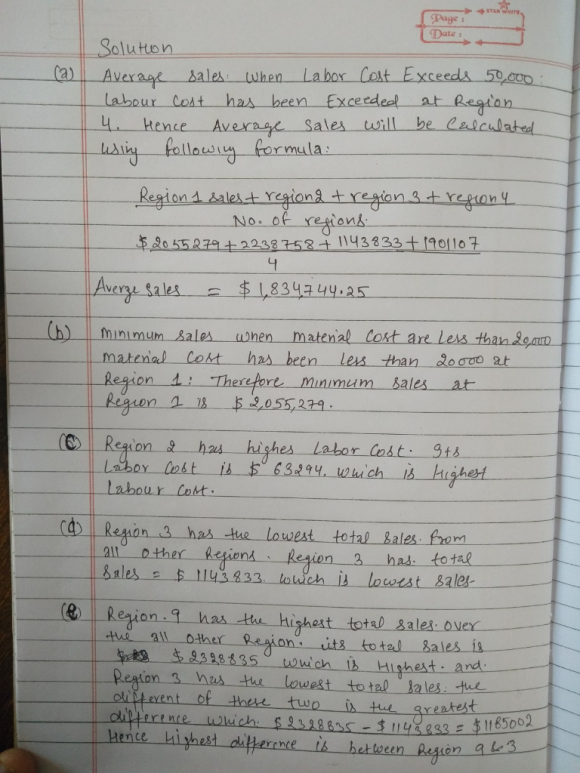 Page :
STAR WHITE
Date :
Solution
(a) Average Sales when Labor Cost Exceeds 50,000 :
Labour Cost has been Exceeded at Region
4. Hence Average Sales will be Calculated
Using following formula:
Region 1 sales + region2 + region 3 + region 4
No. of regions.
$ 2055279 + 2238758 + 1143833 + 1901107
4
Averge Sales = $ 1,834,744.25
(b) minimum sales when material Cost are Less than 20,000
material Cost has been less than 20000 at
Region 1: Therefore minimum Sales at
Region 1 is $ 2,055,279.
(c) Region 2 has highes Labor Cost. Its
Labor Cost is $ 63294. which is Highest
Labour Cost.
(d) Region 3 has the lowest total Sales from
all other Regions. Region 3 has total
Sales = $ 1143833 which is lowest sales-
(e) Region 9 has the Highest total sales over
the all other Region. its total Sales is
$ 2328835 which is Highest. and
Region 3 has the lowest total Sales. the
different of these two is the greatest
difference which: $ 2328835 - $ 1143833 = $ 1185002
Hence Highest difference is between Region 9 & 3